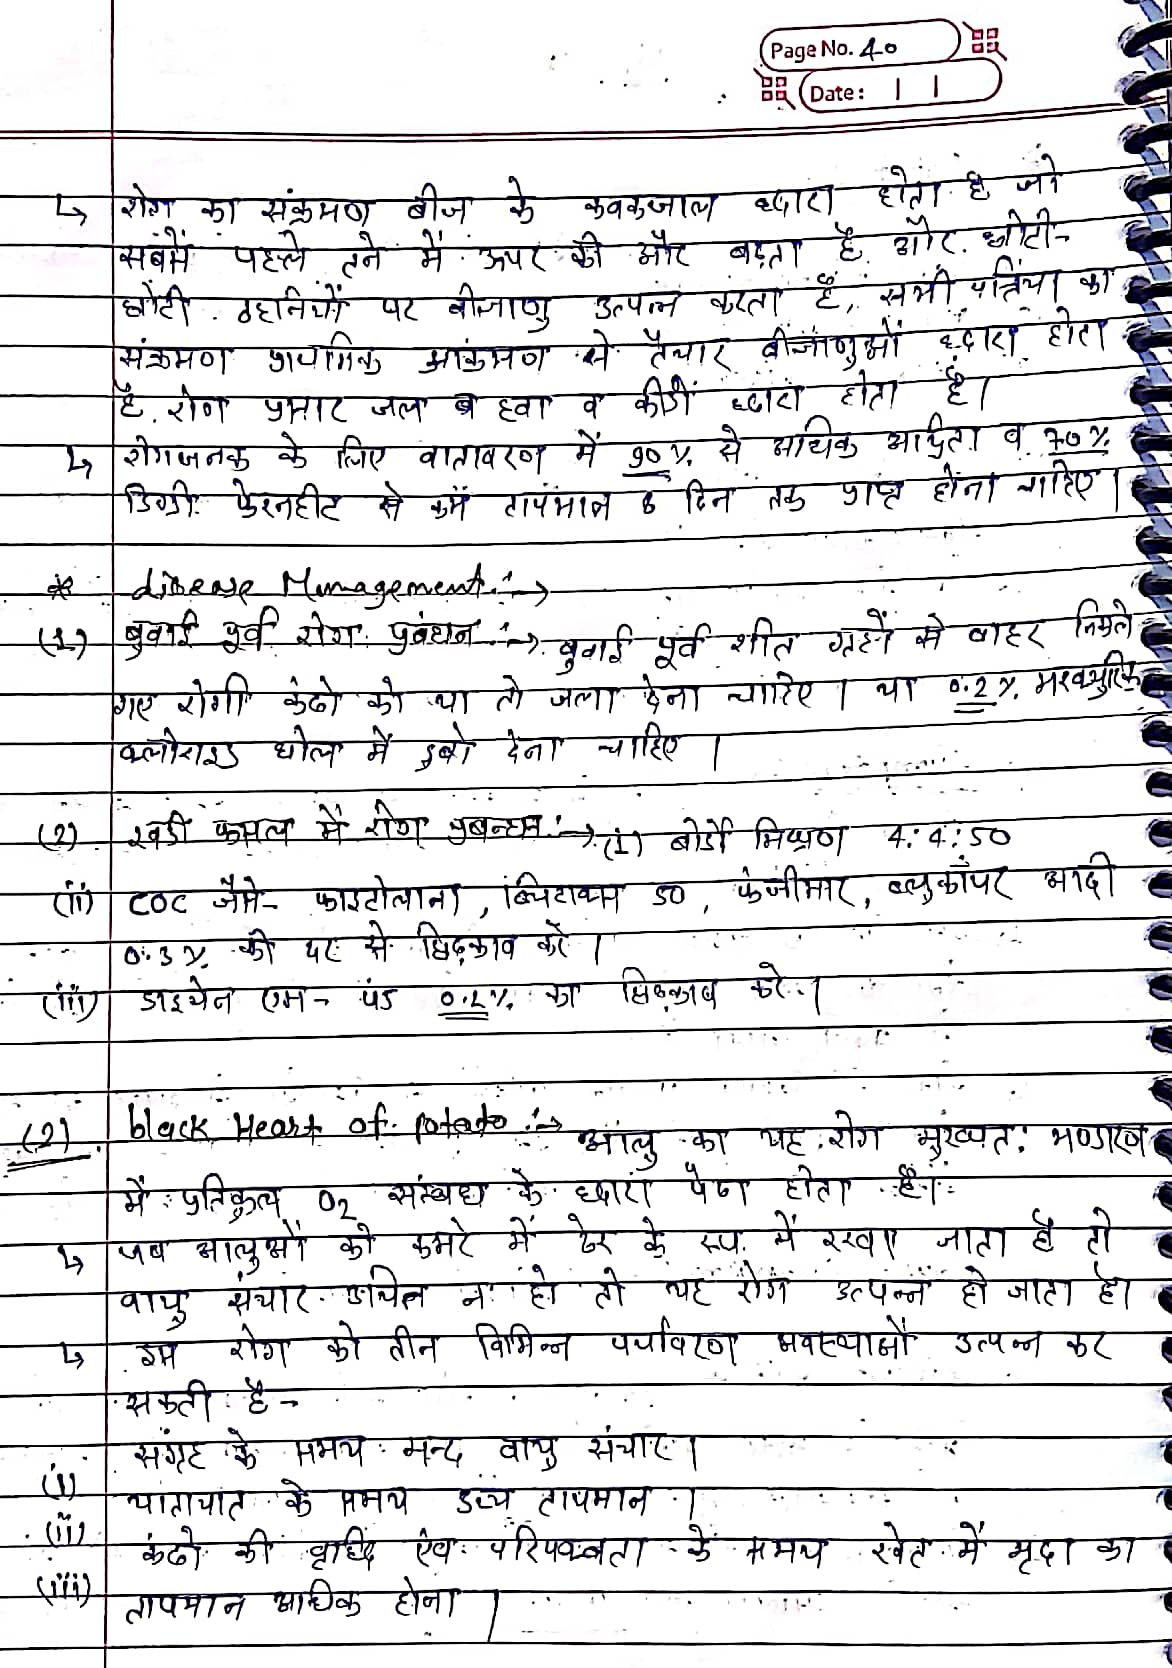 Page No. 40
Date: | |
↳ रोग का संक्रमण बीज के कवकजाल द्वारा होता है जो
सबसे पहले तने में ऊपर की और बढ़ता है और छोटी-
छोटी टहनियों पर बीजाणु उत्पन्न करता है, सभी पत्तियो का
संक्रमण प्राथमिक आक्रमण से तैयार बीजाणुओं द्वारा होता
है. रोग प्रसार जल व हवा व कीडों द्वारा होता है।
↳ रोगजनक के लिए वातावरण में 90% से अधिक आद्रिता व 70%
डिग्री फेरनहीट से कम तापमान 8 दिन तक प्राप्त होना चाहिए।
* disease Management :→
(1) बुवाई पूर्व रोग प्रबंधन :→ बुवाई पूर्व शीत ग्रहों से बाहर निकाले
गए रोगी कंदो को या तो जला देना चाहिए। या 0.2% मरक्युरिक
क्लोराइड घोल में डुबो देना चाहिए।
(2) खडी फसल में रोग प्रबन्धन :→ (i) बोर्डो मिश्रण 4:4:50
(ii) COC जैसे- फाइटोलान, ब्लिटाक्स 50, फंजीमार, ब्लुकॉपर आदी
0.3% की दर से छिड़काव करें।
(iii) डाइथेन एम- जेड 0.2% का छिडकाव करे।
(2) black Heart of potato :→ आलु का यह रोग मुख्यत: भण्डारण
में प्रतिकुल O2 संम्बध के द्वारा पैदा होता है।
↳ जब आलुओं को कमरे में ढेर के रूप में रखा जाता है तो
वायु संचार उचित न हो तो यह रोग उत्पन्न हो जाता है।
↳ इस रोग को तीन विभिन्न पर्यावरण अवस्थाओं उत्पन्न कर
सकती है-
(i) संग्रह के समय मन्द वायु संचार।
(ii) यातायात के समय उच्च तापमान।
(iii) कंदो की वृद्धि एंव परिपक्वता के समय खेत में मृदा का
तापमान अधिक होना।